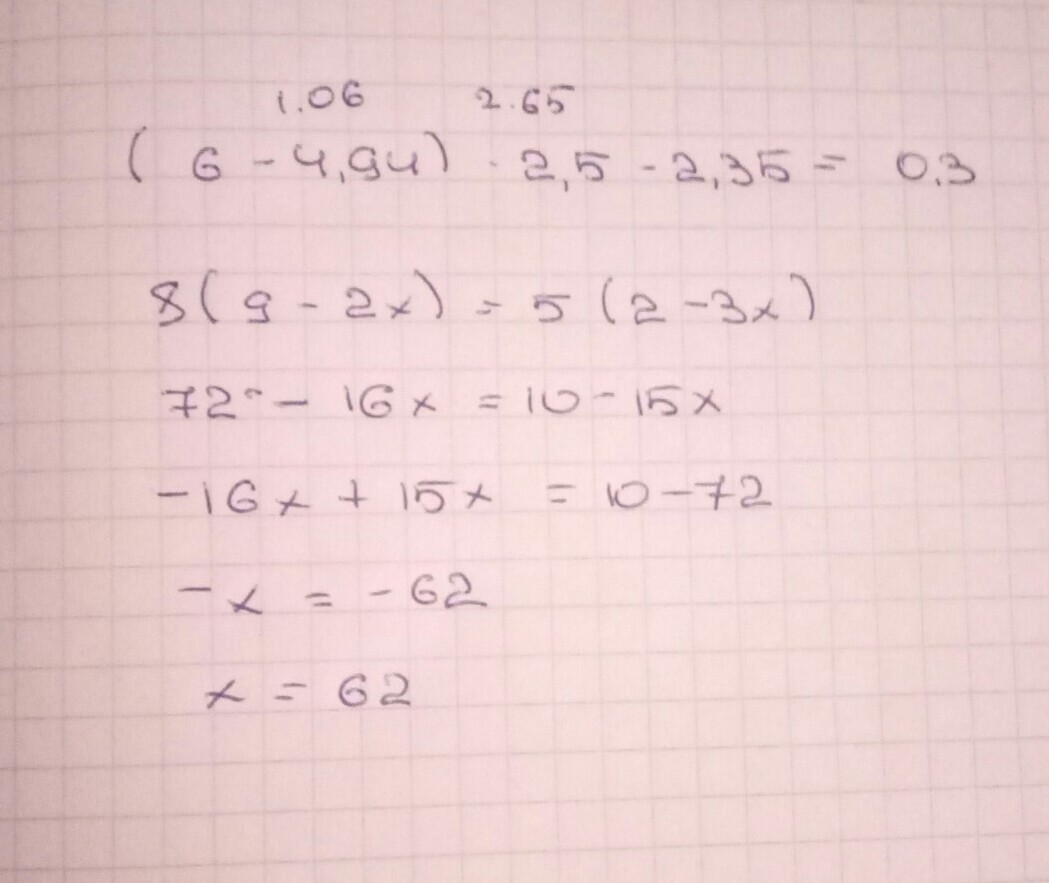 1.06 2.65
( 6 - 4,94) · 2,5 - 2,35 = 0.3
8( 9 - 2x) = 5 (2 -3x)
72 - 16x = 10 - 15x
-16x + 15x = 10 - 72
-x = - 62
x = 62